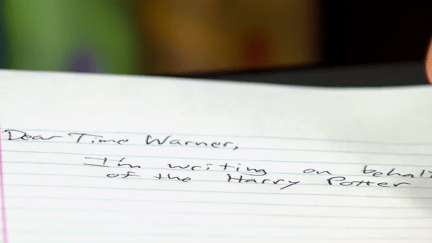 Dear Time Warner,
I'm writing on behal
of the Harry Potter